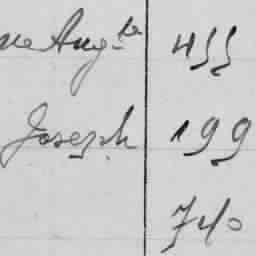 ne Aug.te 455
Joseph 199
740